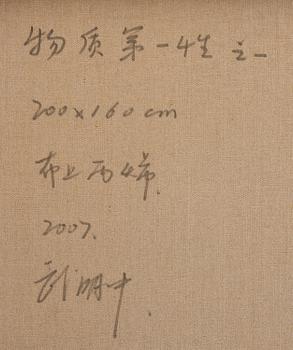 物质第一性 之一
200×160 cm
布上丙烯.
2007.
武明中.